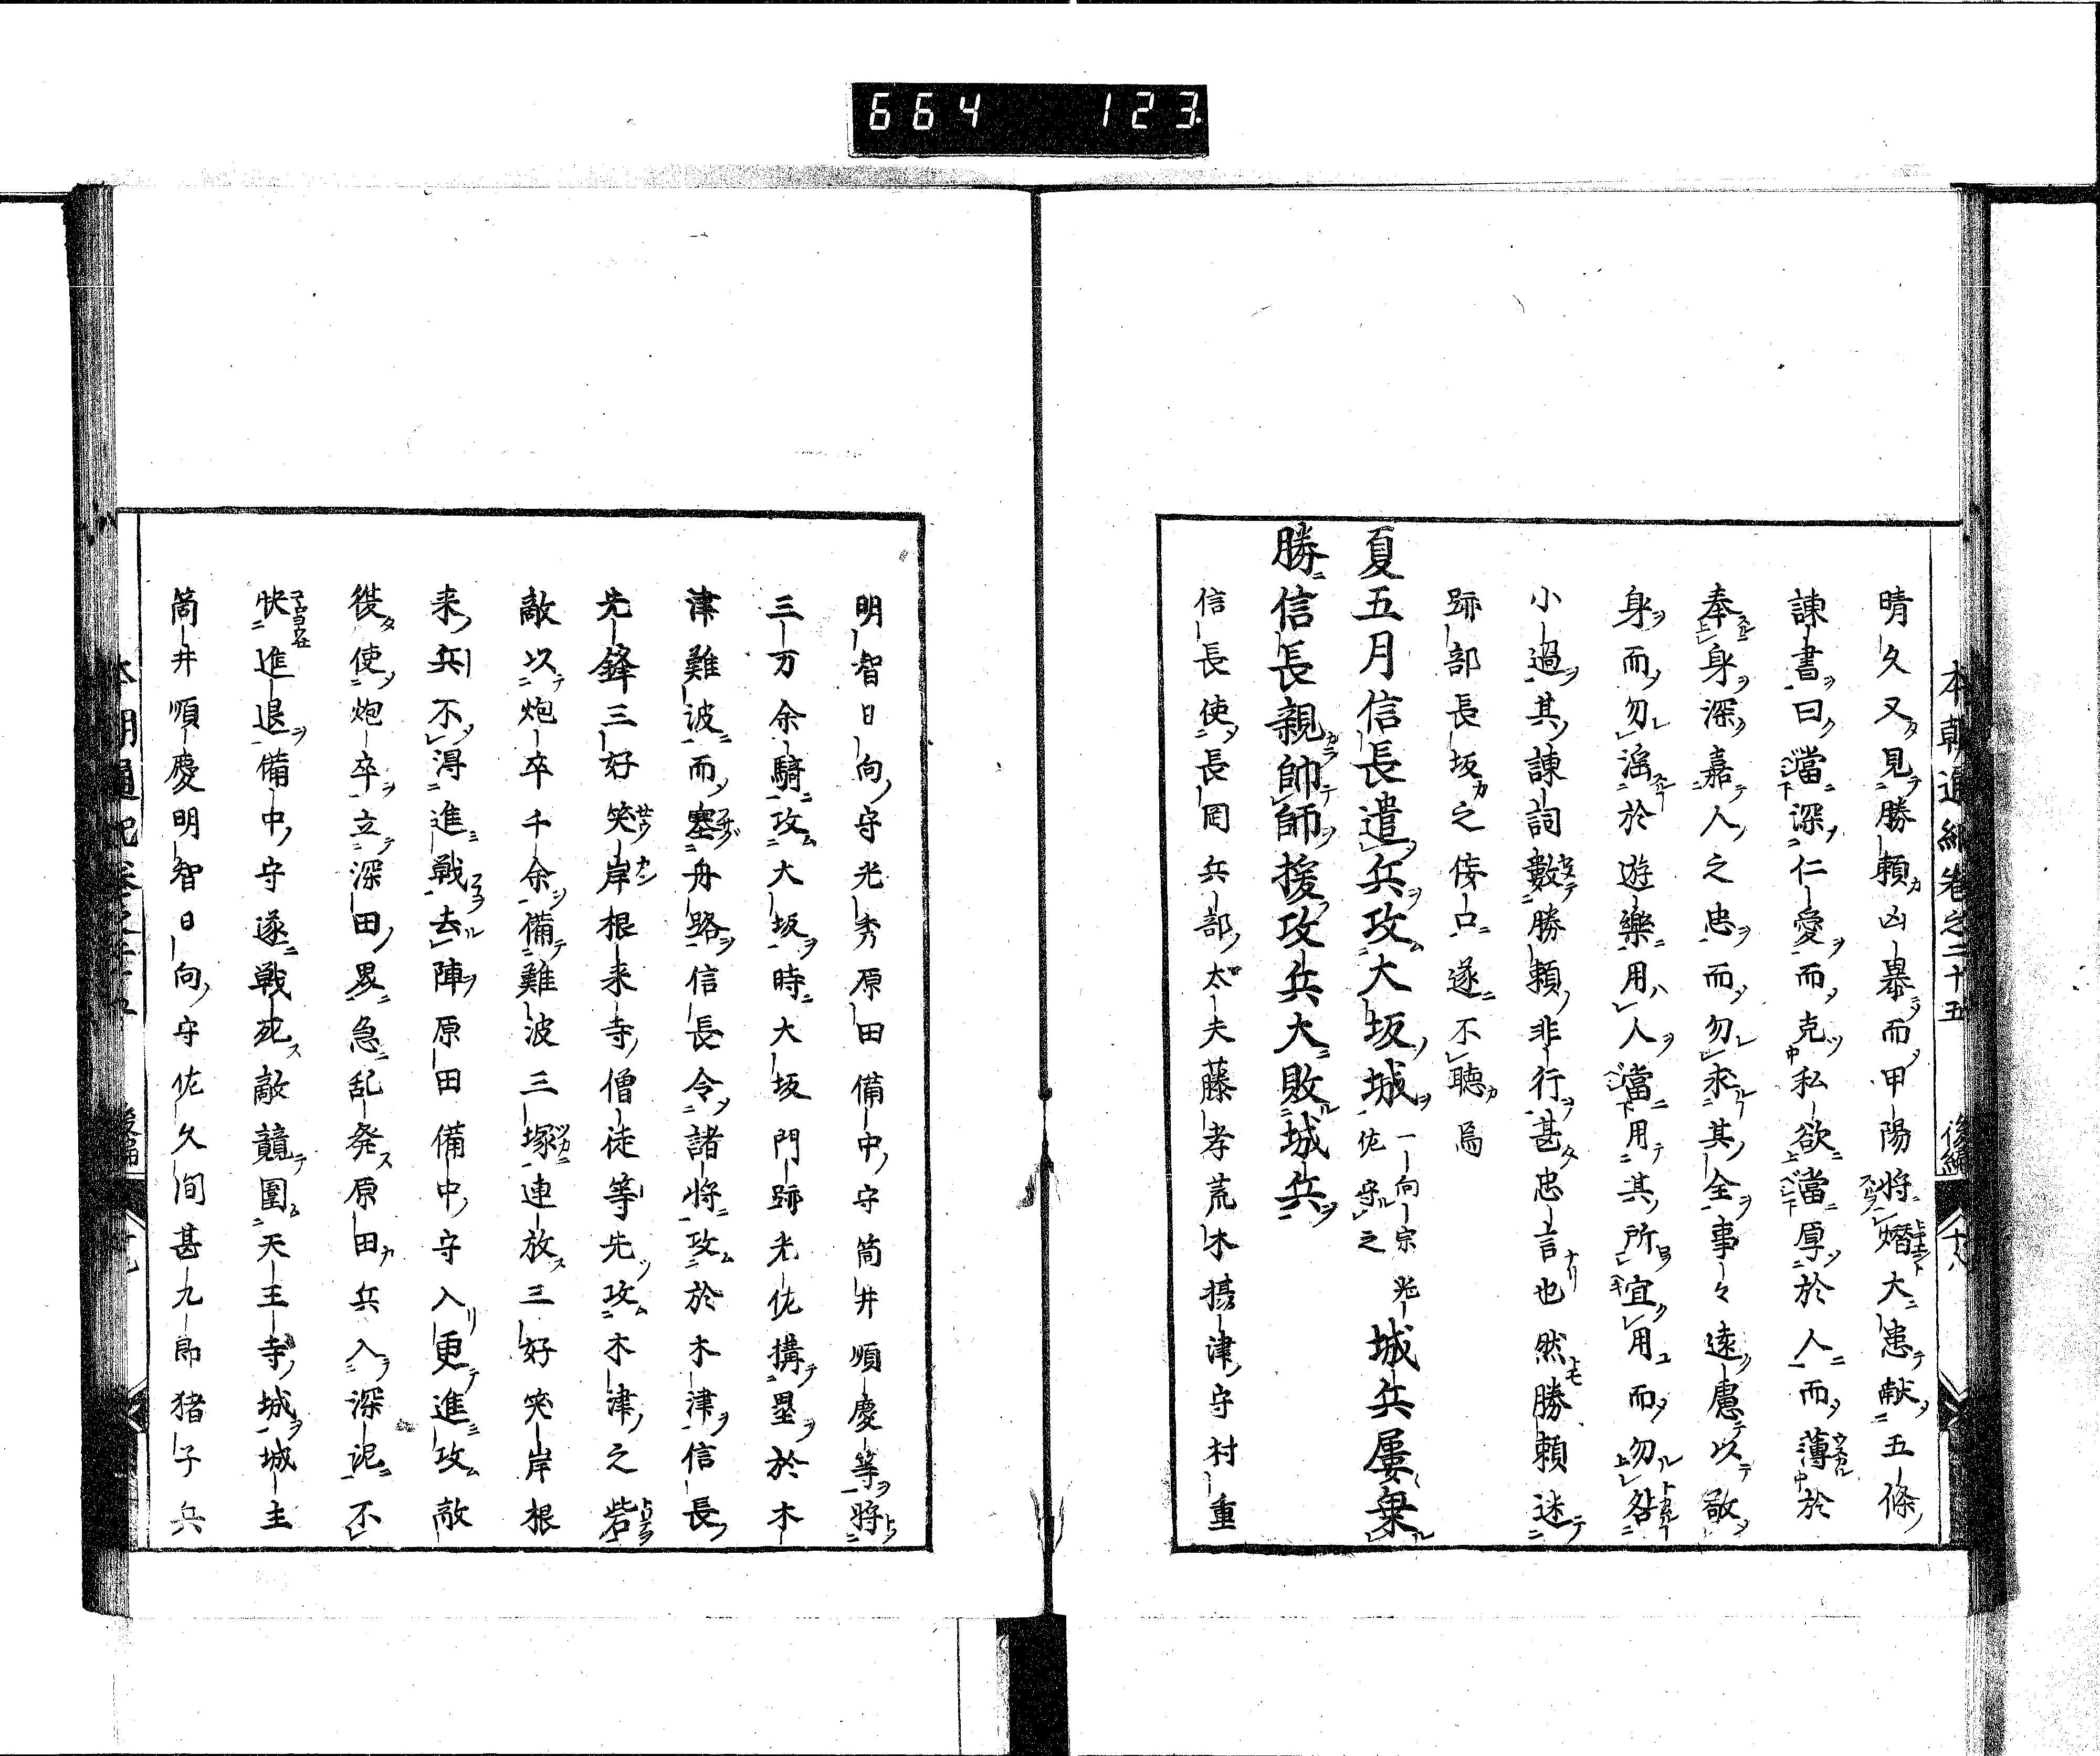 664 123
本朝通紀巻之二十五 後編 十八
晴久又見勝頼凶暴而甲陽将熸大患献五條
諌書曰當深仁愛而克私欲當厚於人而薄於
奉身深嘉人之忠而勿求其全事々遠慮以敬
身而勿滛於遊樂用人當用其所宜用而勿咎
小過其諌詞數勝頼非行甚忠言也然勝頼迷
跡部長坂之傍口遂不聴焉
夏五月信長遣兵攻大坂城一向宗光佐守之城兵屢棄
勝信長親帥師援攻兵大敗城兵
信長使長岡兵部太夫藤孝荒木摂津守村重
明智日向守光秀原田備中守筒井順慶等将
三万余騎攻大坂時大坂門跡光佐搆塁於木
津難波而塞舟路信長令諸将攻於木津信長
先鋒三好笑岸根来寺僧徒等先攻木津之砦
敵以炮卒千余備難波三塚連放三好笑岸根
来兵不得進戦去陣原田備中守入更進攻敵
従使炮卒立深田畧急乱発原田兵入深泥不
快進退備中守遂戦死敵競圍天王寺城城主
筒井順慶明智日向守佐久间甚九郎猪子兵
本朝通紀巻之二十五 後編